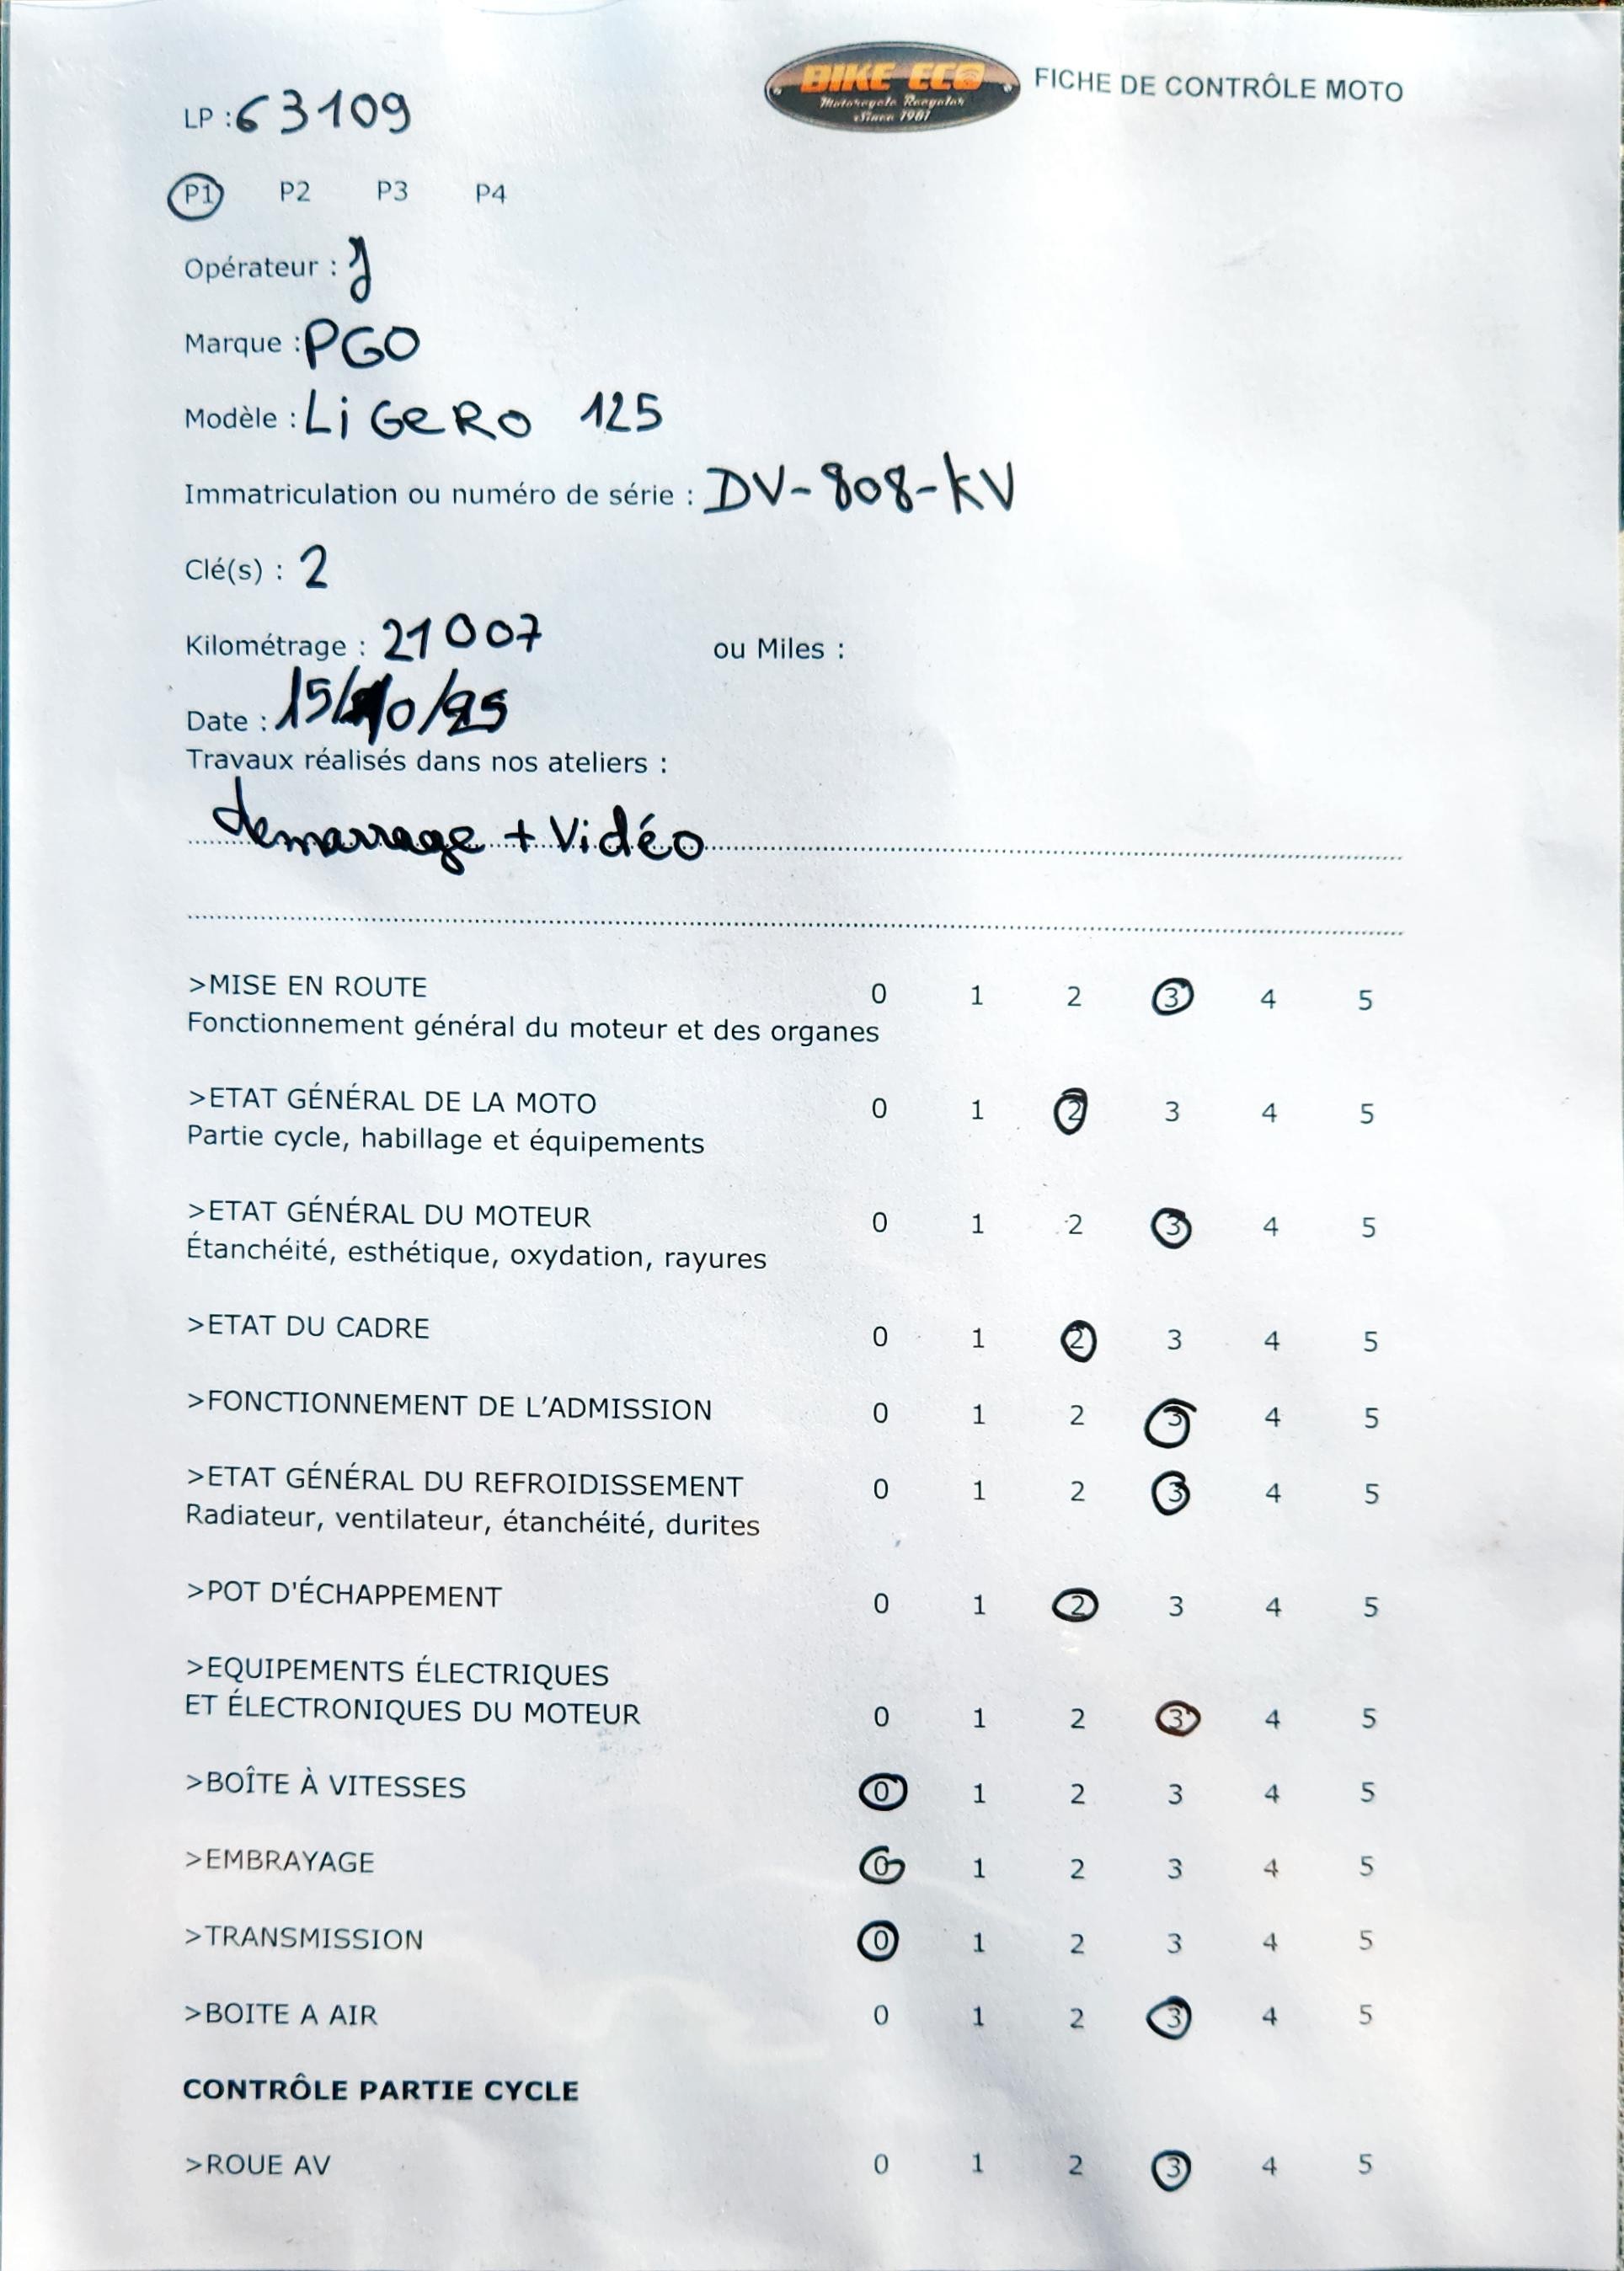 BIKE ECO
Motorcycle Recycler
Since 1981
FICHE DE CONTRÔLE MOTO
LP : 63109
P1 P2 P3 P4
Opérateur : J
Marque : PGO
Modèle : LiGeRO 125
Immatriculation ou numéro de série : DV-808-KV
Clé(s) : 2
Kilométrage : 21007 ou Miles :
Date : 15/10/25
Travaux réalisés dans nos ateliers :
demarrage + Vidéo
>MISE EN ROUTE 0 1 2 3 4 5
Fonctionnement général du moteur et des organes
>ETAT GÉNÉRAL DE LA MOTO 0 1 2 3 4 5
Partie cycle, habillage et équipements
>ETAT GÉNÉRAL DU MOTEUR 0 1 2 3 4 5
Étanchéité, esthétique, oxydation, rayures
>ETAT DU CADRE 0 1 2 3 4 5
>FONCTIONNEMENT DE L'ADMISSION 0 1 2 3 4 5
>ETAT GÉNÉRAL DU REFROIDISSEMENT 0 1 2 3 4 5
Radiateur, ventilateur, étanchéité, durites
>POT D'ÉCHAPPEMENT 0 1 2 3 4 5
>EQUIPEMENTS ÉLECTRIQUES
ET ÉLECTRONIQUES DU MOTEUR 0 1 2 3 4 5
>BOÎTE À VITESSES 0 1 2 3 4 5
>EMBRAYAGE 0 1 2 3 4 5
>TRANSMISSION 0 1 2 3 4 5
>BOITE A AIR 0 1 2 3 4 5
CONTRÔLE PARTIE CYCLE
>ROUE AV 0 1 2 3 4 5